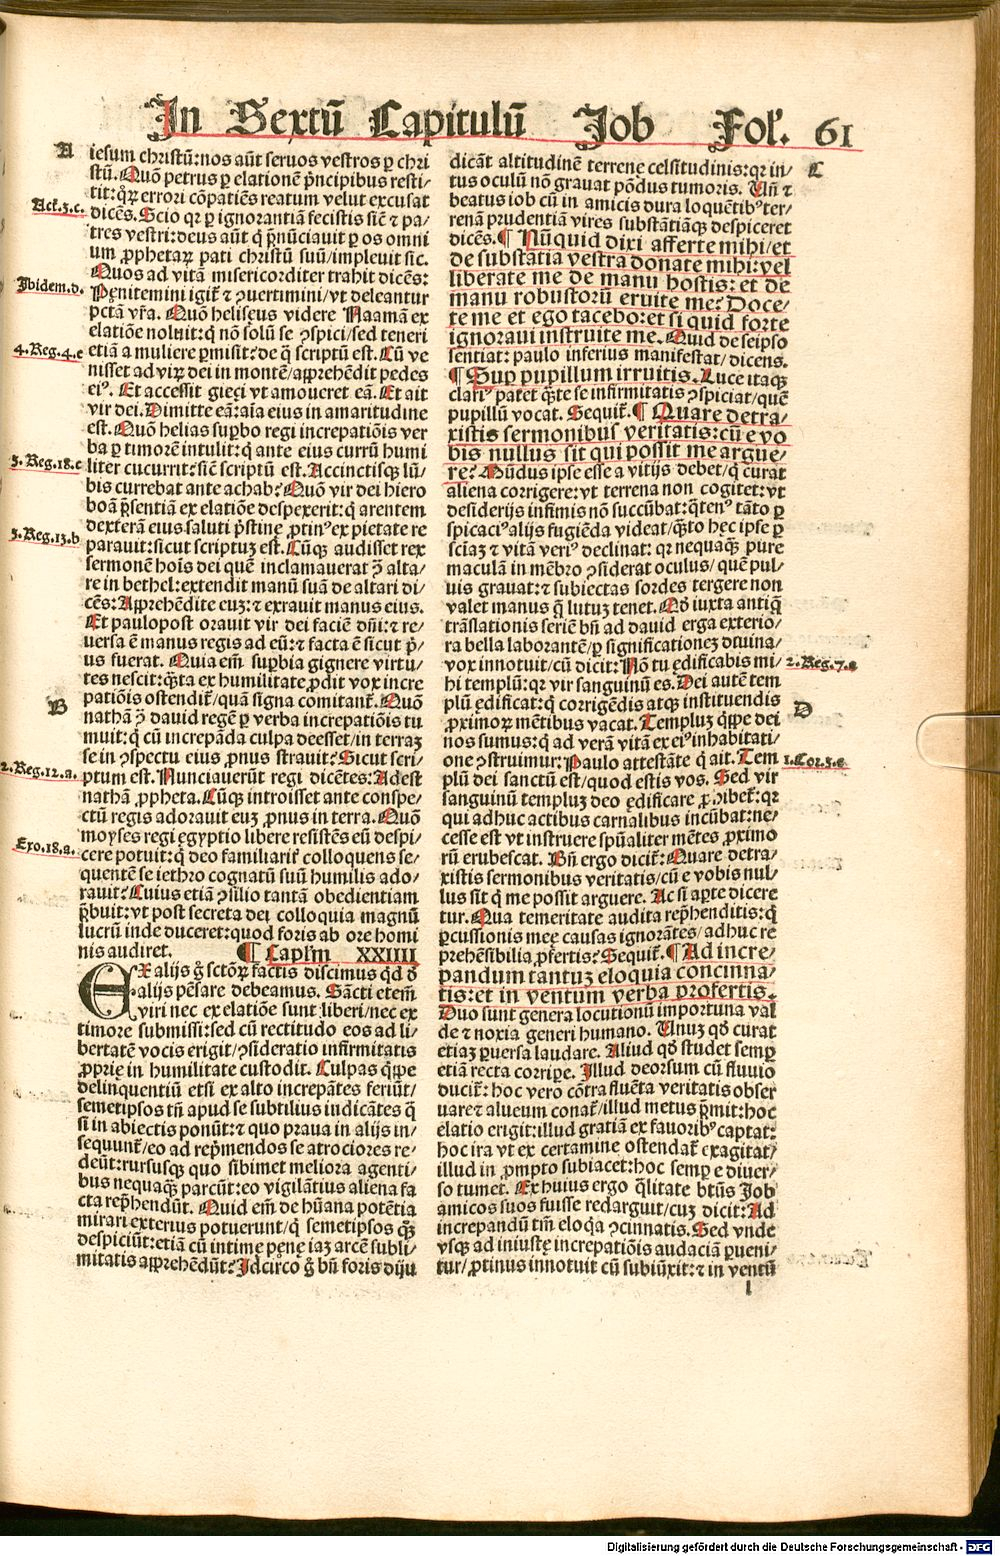 In Sextū Capitulū Job Fol. 61
A
iesum christū: nos aūt seruos vestros ꝑ chri
stū. Quō petrus ꝑ elationē p̄ncipibus resti/
tit: qꝫ errori cōpatiēs reatum velut excusat
Act.3.c.
dicēs. Scio qꝛ ꝑ ignorantiā fecistis sic̄ ⁊ pa/
tres vestri: deus aūt q̄ p̄nūciauit ꝑ os omni
um ꝓphetaꝝ pati christū suū/impleuit sic.
Quos ad vitā misericorditer trahit dicēs:
Ibidem.d.
Pęnitemini igit̄ ⁊ ꝯuertimini/vt deleantur
pctā vr̄a. Quō heliseus videre Naamā ex
elatiōe noluit: q̄ nō solū se ꝯspici/sed teneri
4.Reg.4.e
etiā a muliere ꝑmisit: de q̄ scriptū est. Cū ve
nisset ad viꝝ dei in montē/apprehēdit pedes
eiꝰ. Et accessit gięci vt amoueret eā. Et ait
vir dei. Dimitte eā: aīa eius in amaritudine
est. Quō helias suꝑbo regi increpatiōis ver
ba ꝑ timorē intulit: q̄ ante eius currū humi
3.Reg.18.e
liter cucurrit: sic̄ scriptū est. Accinctisqꝫ lū/
bis currebat ante achab? Quō vir dei hiero
boā p̄sentiā ex elatiōe despexerit: q̄ arentem
dexterā eius saluti p̄stinę ꝓtinꝰ ex pietate re
3.Reg.13.b
parauit: sicut scriptuꝫ est. Cūqꝫ audisset rex
sermonē hoīs dei quē inclamauerat ꝯ̄ alta/
re in bethel: extendit manū suā de altari di/
cēs: Apprehēdite euꝫ: ⁊ exrauit manus eius.
Et paulopost orauit vir dei faciē dn̄i: ⁊ re/
uersa ē manus regis ad eū: ⁊ facta ē sicut p̄/
us fuerat. Quia em̄ suꝑbia gignere virtu/
tes nescit: qͣ̄ta ex humilitate ꝓdit vox incre
patiōis ostendit̄/quā signa comitant̄. Quō
B
nathā ꝯ̄ dauid regē ꝑ verba increpatiōis tu
muit: q̄ cū increpāda culpa deesset/in terraꝫ
se in ꝯspectu eius ꝓnus strauit? Sicut scri/
2.Reg.12.a.
ptum est. Nunciauerūt regi dicētes: Adest
nathā ꝓpheta. Cūqꝫ introisset ante conspe/
ctū regis adorauit euꝫ ꝓnus in terra. Quō
moyses regi ęgyptio libere resistēs eū despi/
Exo.18.a.
cere potuit: q̄ deo familiariꝰ colloquens se/
quentē se iethro cognatū suū humilis ado/
rauit? Cuius etiā ꝯsilio tantā obedientiam
p̄buit: vt post secreta dei colloquia magnū
lucrū inde duceret: quod foris ab ore homi
nis audiret. ¶ Caplm̄ XXIIII
EX alijs g̊ sctōꝝ factis discimus qͥd ď
alijs pēsare debeamus. Sācti etem̄
viri nec ex elatiōe sunt liberi/nec ex
timore submissi: sed cū rectitudo eos ad li/
bertatē vocis erigit/ꝯsideratio infirmitatis
ꝓprię in humilitate custodit. Culpas qͥppe
delinquentiū etsi ex alto increpātes feriūt/
semetipsos tn̄ apud se subtilius indicātes q̄
si in abiectis ponūt: ⁊ quo praua in alijs in/
sequunt̄/eo ad rep̄mendos se atrociores re/
deūt: rursusqꝫ quo sibimet meliora agenti/
bus nequaqꝫ parcūt: eo vigilātius aliena fa
cta rep̄hendūt. Quid em̄ de hūana potētia
mirari exterius potuerunt/q̄ semetipsos qͣꝫ
despiciūt: etiā cū intimę pęne iaꝫ arcē subli/
mitatis apprehēdūt? Idcirco g̊ bn̄ foris diju
dicāt altitudinē terrene celsitudinis: qꝛ in/
C
tus oculū nō grauat pōdus tumoris. Un̄ ⁊
beatus iob cū in amicis dura loquētibꝰ ter/
renā prudentiā vires substātiāqꝫ despiceret
dicēs. ¶ Nūquid dixi afferte mihi/et
de substātia vestra donate mihi: vel
liberate me de manu hostis: et de
manu robustorū eruite me? Doce/
te me et ego tacebo: et si quid forte
ignoraui instruite me. Quid de seipso
sentiat: paulo inferius manifestat/dicens.
¶ Suꝑ pupillum irruitis. Luce itaqꝫ
clariꝰ patet qͣ̄te se infirmitatis ꝯspiciat/quē
pupillū vocat. Sequit̄. ¶ Quare detra/
xistis sermonibus veritatis: cū e vo
bis nullus sit qui possit me argue/
re? Mūdus ipse esse a vitijs debet/q̄ curat
aliena corrigere: vt terrena non cogitet: vt
desiderijs infimis nō succūbat: qͣtenꝰ tāto ꝑ
spicaciꝰ alijs fugiēda videat/qͣ̄to hęc ipse ꝑ
sciāꝫ ⁊ vitā veriꝰ declinat: qꝛ nequaqꝫ pure
maculā in mēbro ꝯsiderat oculus/quē pul/
uis grauat: ⁊ subiectas sordes tergere non
valet manus q̄ lutuꝫ tenet. Qď iuxta antiq̄
trāslationis seriē bn̄ ad dauid erga exterio/
ra bella laborantē/ꝑ significationeꝫ diuina/
vox innotuit/cū dicit: Nō tu ędificabis mi/
2.Reg.7.a
hi templū: qꝛ vir sanguinū es. Dei autē tem
plū ędificat: q̄ corrigēdis atqꝫ instituendis
D
ꝓximoꝝ mētibus vacat. Templuꝫ qͥppe dei
nos sumus: q̄ ad verā vitā ex eiꝰ inhabitati/
one ꝯstruimur: Paulo attestāte q̄ ait. Tem
1.Cor.3.e
plū dei sanctū est/quod estis vos. Sed vir
sanguinū templuꝫ deo ędificare ꝓhibet̄: qꝛ
qui adhuc actibus carnalibus incūbat: ne/
cesse est vt instruere spūaliter mētes ꝓximo
rū erubescat. Bn̄ ergo dicit̄: Quare detra/
xistis sermonibus veritatis/cū e vobis nul/
lus sit q̄ me possit arguere. Ac si aꝑte dicere
tur. Qua temeritate audita rep̄henditis: q̄
ꝑcussionis meę causas ignorātes/adhuc re
prehēsibilia ꝓfertis? Sequit̄. ¶ Ad incre/
pandum tantuꝫ eloquia concinna/
tis: et in ventum verba profertis.
Duo sunt genera locutionū importuna val
de ⁊ noxia generi humano. Unuꝫ qď curat
etiaꝫ ꝑuersa laudare. Aliud qď studet semꝑ
etiā recta corripe. Illud deorsum cū fluuio
ducit̄: hoc vero cōtra fluēta veritatis obser
uare ⁊ alueum conat̄/illud metus p̄mit: hoc
elatio erigit: illud gratiā ex fauoribꝰ captat:
hoc ira vt ex certamine ostendat̄ exagitat/
illud in ꝓmpto subiacet: hoc semꝑ e diuer/
so tumet. Ex huius ergo qͣlitate btūs Job
amicos suos fuisse redarguit/cuꝫ dicit: Ad
increpandū tm̄ eloqͥa ꝯcinnatis. Sed vnde
vsqꝫ ad iniustę increpatiōis audaciā ꝑueni/
tur/ꝓtinus innotuit cū subiūxit: ⁊ in ventū
l
Digitalisierung gefördert durch die Deutsche Forschungsgemeinschaft - DFG